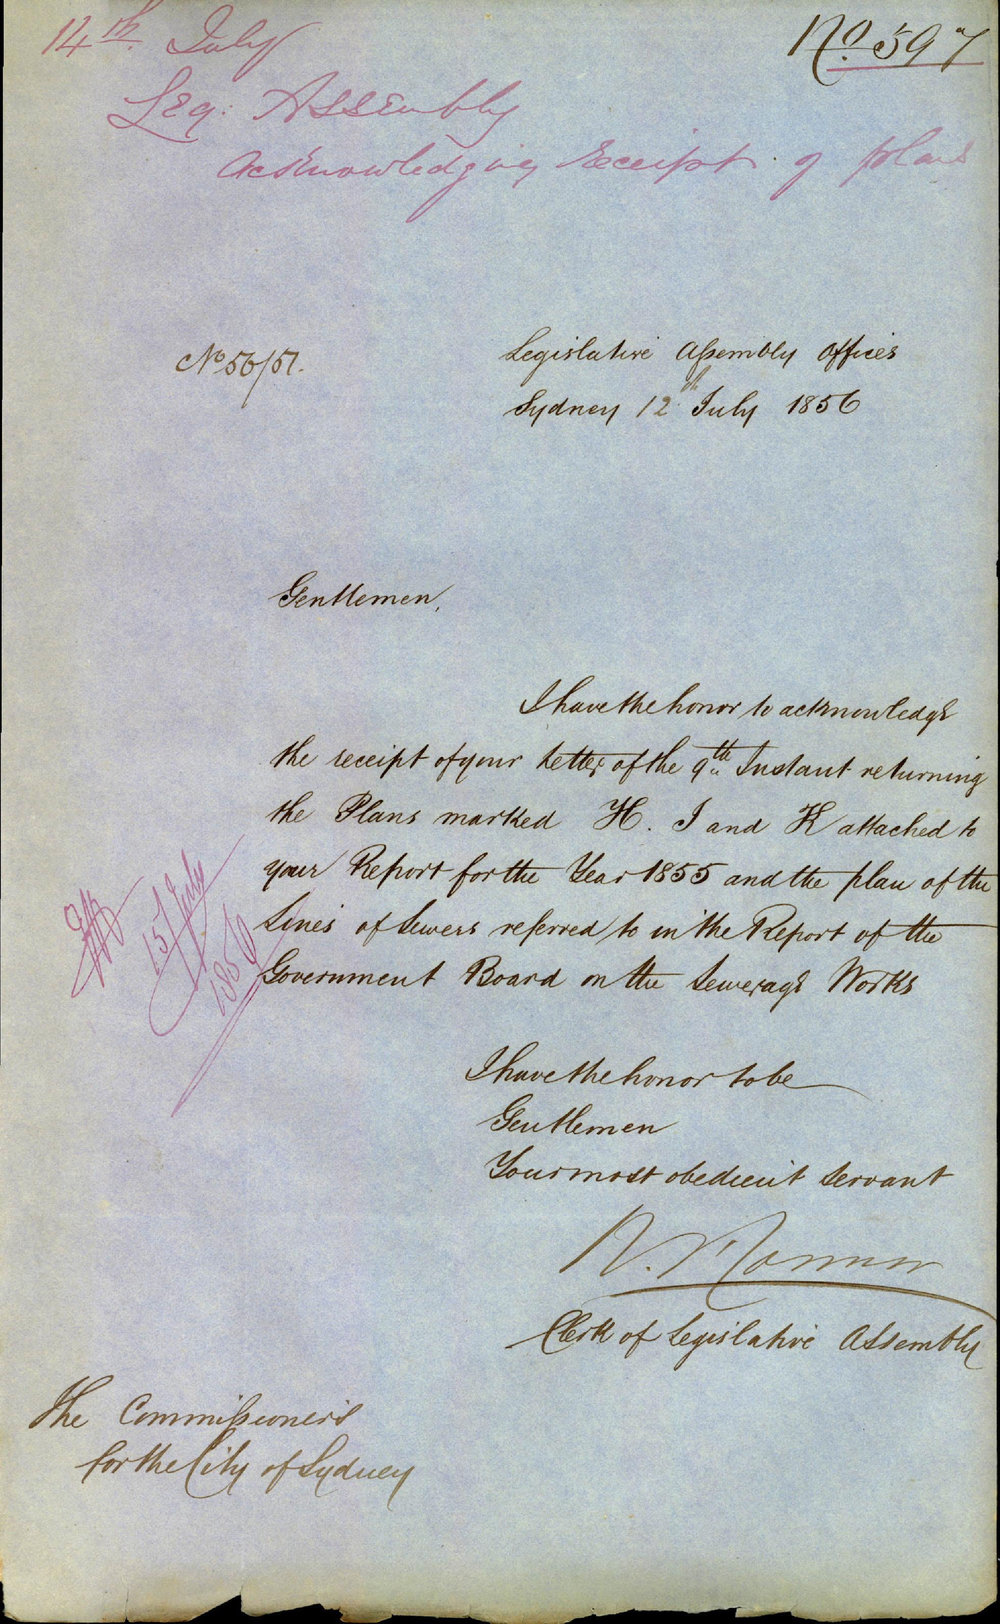 14th July
No. 597
Leg: Assembly
Acknowledging receipt of plans
No 56/51.
Legislative Assembly Offices
Sydney 12th July 1856
Gentlemen,
I have the honor to acknowledge
the receipt of your letter of the 9th Instant returning
the Plans marked H. I and K attached to
your Report for the Year 1855 and the plan of the
Lines of Sewers referred to in the Report of the
Government Board on the Sewerage Works
15 July
1856
I have the honor to be
Gentlemen
Your most obedient servant
Clerk of Legislative Assembly
The Commissioners
for the City of Sydney